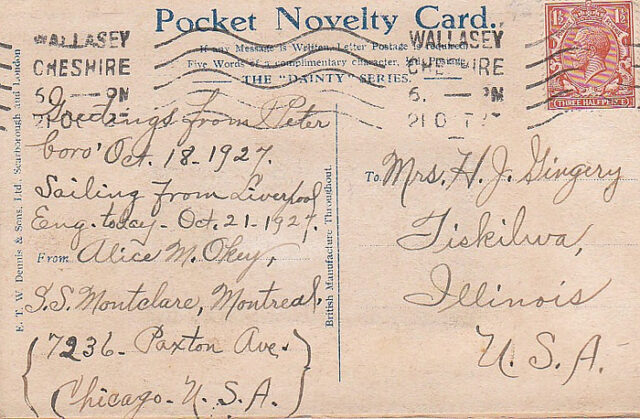 Pocket Novelty Card.
If any Message is Written, Letter Postage is required
Five Words of a complimentary character,
THE "DAINTY" SERIES.
WALLASEY
CHESHIRE
WALLASEY
THREE HALFPENCE
Greetings from Peter
boro' Oct. 18-1927.
Sailing from Liverpool
Eng. today - Oct. 21-1927.
From Alice M. Okey,
S.S. Montclare, Montreal.
7236- Paxton Ave.
Chicago - U.S.A.
To Mrs. H. J. Gingery
Tiskilwa,
Illinois
U.S.A.
E. T. W. Dennis & Sons, Ltd. Scarborough and London
British Manufacture Throughout.